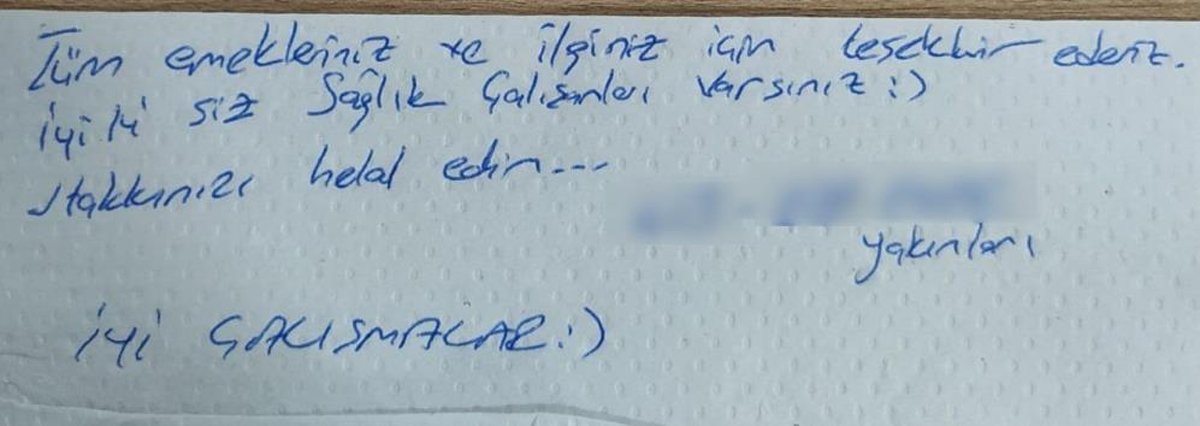 Tüm emekleriniz ve ilginiz için teşekkür ederiz.
iyi ki siz Sağlık Çalışanları varsınız :)
Hakkınızı helal edin...
yakınları
iyi ÇALIŞMALAR :)